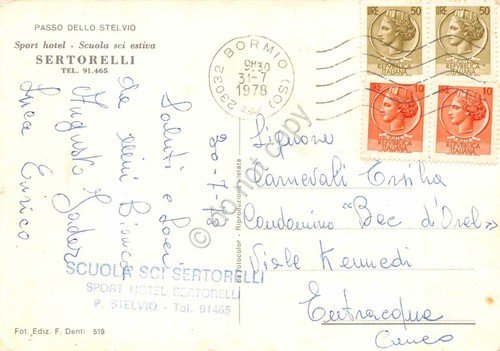 PASSO DELLO STELVIO
Sport hotel - Scuola sci estiva
SERTORELLI
TEL. 91.465
23032 BORMIO (SO)
9H30
31-7
1978
LIRE 50
REPUBBLICA ITALIANA
LIRE 50
REPUBBLICA ITALIANA
LIRE 10
REPUBBLICA ITALIANA
LIRE 10
REPUBBLICA ITALIANA
30-7-78
Saluti e baci
da Bianca
Augusto
Luca Enrico.
Signora
Carnevali Ersilia
Condominio "Bec d'Orel"
Viale Kennedi
Entracqua
Cuneo
SCUOLA SCI SERTORELLI
SPORT HOTEL SERTORELLI
P. STELVIO - Tel. 91465
Fot. Ediz. F. Denti 519
do not copy